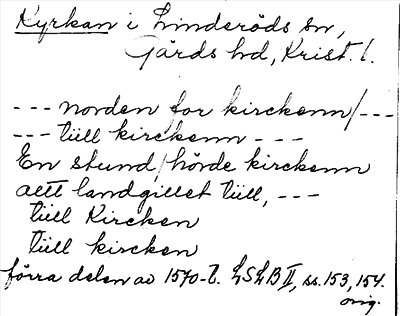 Kyrkan i Linderöds sn,
Gärds hd, Krist. l.
--- norden for kirckenn/---
--- tüll kirckenn ---
En stund/hörde kirckenn
altt landgillet tüll, ---
tüll Kircken
tüll kircken
förra delen av 1570-t. LSLB II, ss. 153, 154.
orig.